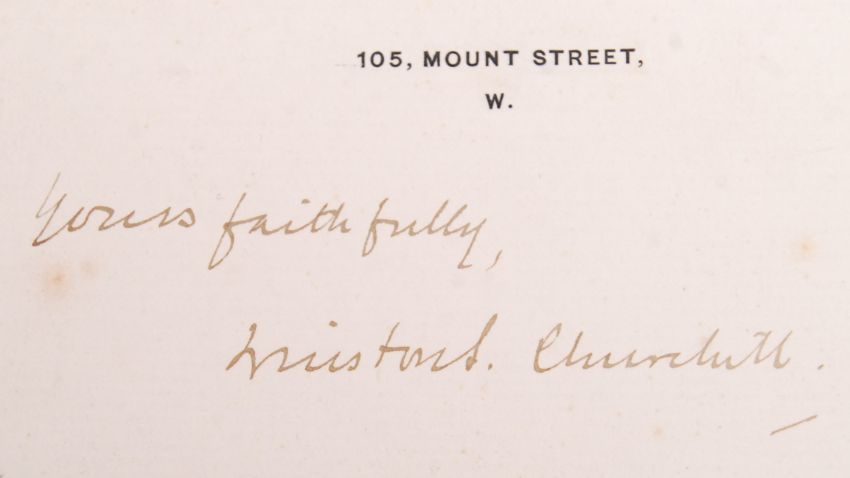 105, MOUNT STREET,
W.
Yours faithfully,
Winston S. Churchill.